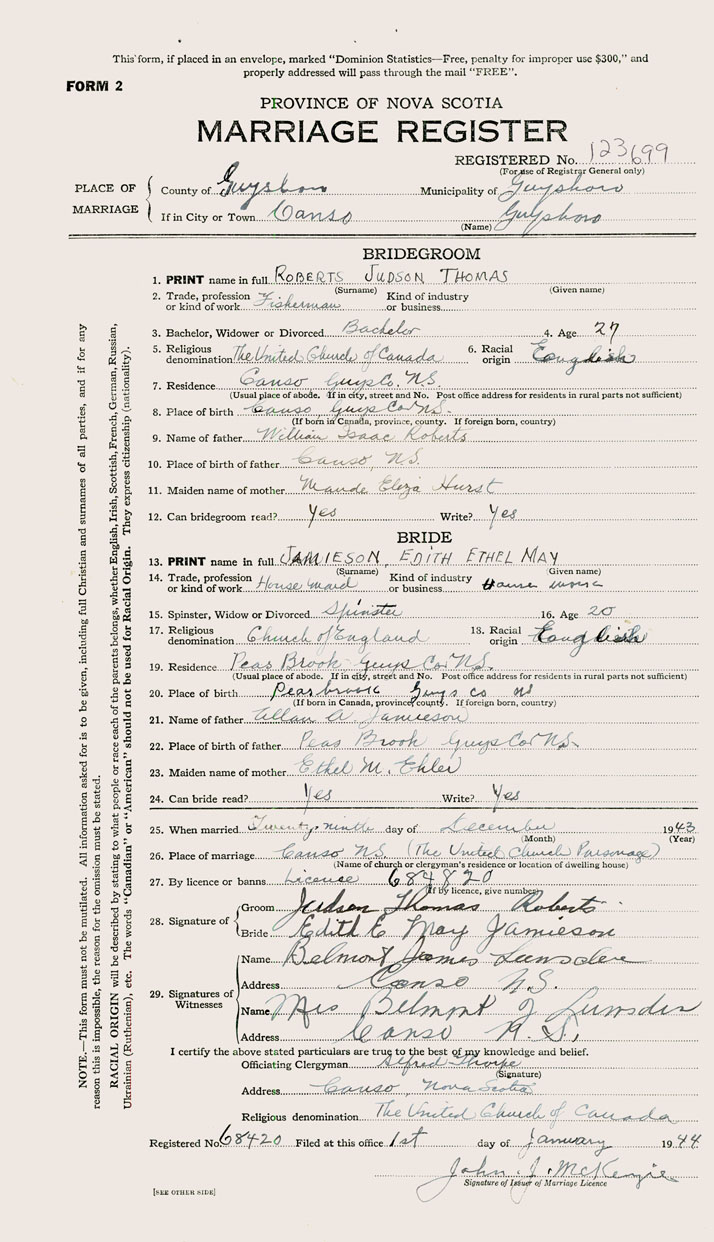 This form, if placed in an envelope, marked "Dominion Statistics—Free, penalty for improper use $300," and
properly addressed will pass through the mail "FREE".
FORM 2
PROVINCE OF NOVA SCOTIA
MARRIAGE REGISTER
REGISTERED No. 123699
(For use of Registrar General only)
PLACE OF MARRIAGE
County of Guysboro Municipality of Guysboro
If in City or Town Canso Guysboro
(Name)
BRIDEGROOM
1. PRINT name in full ROBERTS JUDSON THOMAS
(Surname) (Given name)
2. Trade, profession or kind of work Fisherman Kind of industry or business
3. Bachelor, Widower or Divorced Bachelor 4. Age 27
5. Religious denomination The United Church of Canada 6. Racial origin English
7. Residence Canso Guys Co. N.S.
(Usual place of abode. If in city, street and No. Post office address for residents in rural parts not sufficient)
8. Place of birth Canso Guys Co N.S.
(If born in Canada, province, county. If foreign born, country)
9. Name of father William Isaac Roberts
10. Place of birth of father Canso, N.S.
11. Maiden name of mother Maude Eliza Hurst
12. Can bridegroom read? Yes Write? Yes
BRIDE
13. PRINT name in full JAMIESON, EDITH ETHEL MAY
(Surname) (Given name)
14. Trade, profession or kind of work House maid Kind of industry or business House work
15. Spinster, Widow or Divorced Spinster 16. Age 20
17. Religious denomination Church of England 18. Racial origin English
19. Residence Peas Brook Guys Co N.S.
(Usual place of abode. If in city, street and No. Post office address for residents in rural parts not sufficient)
20. Place of birth Peas brook Guys co ns
(If born in Canada, province, county. If foreign born, country)
21. Name of father Allan A Jamieson
22. Place of birth of father Peas Brook Guys Co N.S.
23. Maiden name of mother Ethel M. Ehler
24. Can bride read? Yes Write? Yes
25. When married Twenty-ninth day of December 1943
(Month) (Year)
26. Place of marriage Canso N.S. (The United Church Parsonage)
(Name of church or clergyman's residence or location of dwelling house)
27. By licence or banns Licence 684820
(If by licence, give number)
28. Signature of
Groom Judson Thomas Roberts
Bride Edith E May Jamieson
29. Signatures of Witnesses
Name Belmont James Lumsden
Address Canso N.S.
Name Mrs Belmont J Lumsden
Address Canso N.S.
I certify the above stated particulars are true to the best of my knowledge and belief.
Officiating Clergyman Alfred Thorpe
(Signature)
Address Canso, Nova Scotia
Religious denomination The United Church of Canada
Registered No. 68420 Filed at this office 1st day of January 1944
John J. McKenzie
Signature of Issuer of Marriage Licence
[SEE OTHER SIDE]
NOTE.—This form must not be mutilated. All information asked for is to be given, including full Christian and surnames of all parties, and if for any
reason this is impossible, the reason for the omission must be stated.
RACIAL ORIGIN will be described by stating to what people or race each of the parents belongs, whether English, Irish, Scottish, French, German, Russian,
Ukrainian (Ruthenian), etc. The words "Canadian" or "American" should not be used for Racial Origin. They express citizenship (nationality).